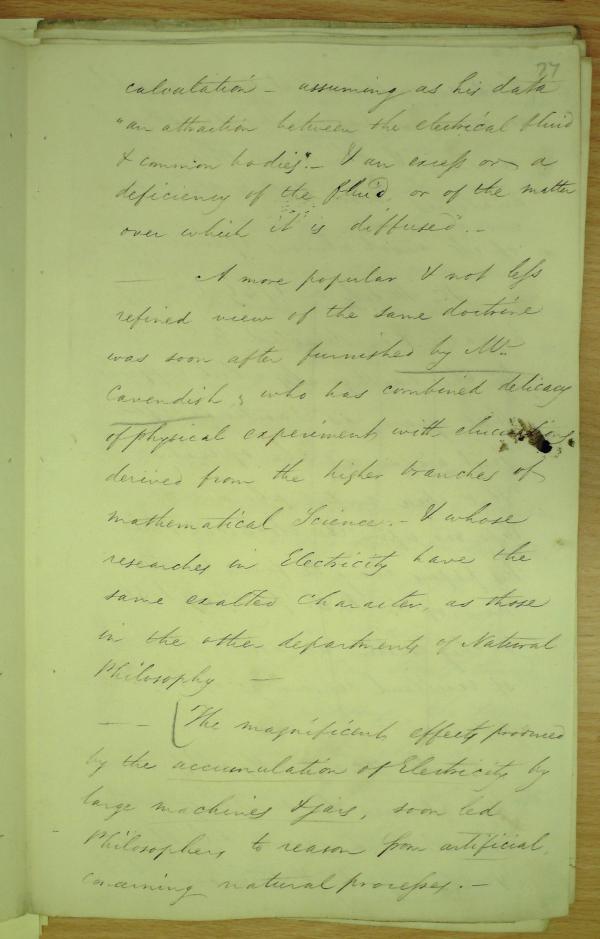 27
calculation - assuming as his data
"an attraction between the electrical fluid
& common bodies". - & an excess or a
deficiency of the fluid, or of the matter
over which it is diffused. -
— A more popular & not less
refined view of the same doctrine
was soon after furnished by Mr.
Cavendish, who has combined delicacy
of physical experiment with elucidations
derived from the higher branches of
mathematical Science. - & whose
researches in Electricity have the
same exalted Character, as those
in the other departments of Natural
Philosophy —
— — [The magnificent effects produced
by the accumulation of Electricity by
large machines & jars, soon led
Philosophers to reason from artificial,
concerning natural processes. -